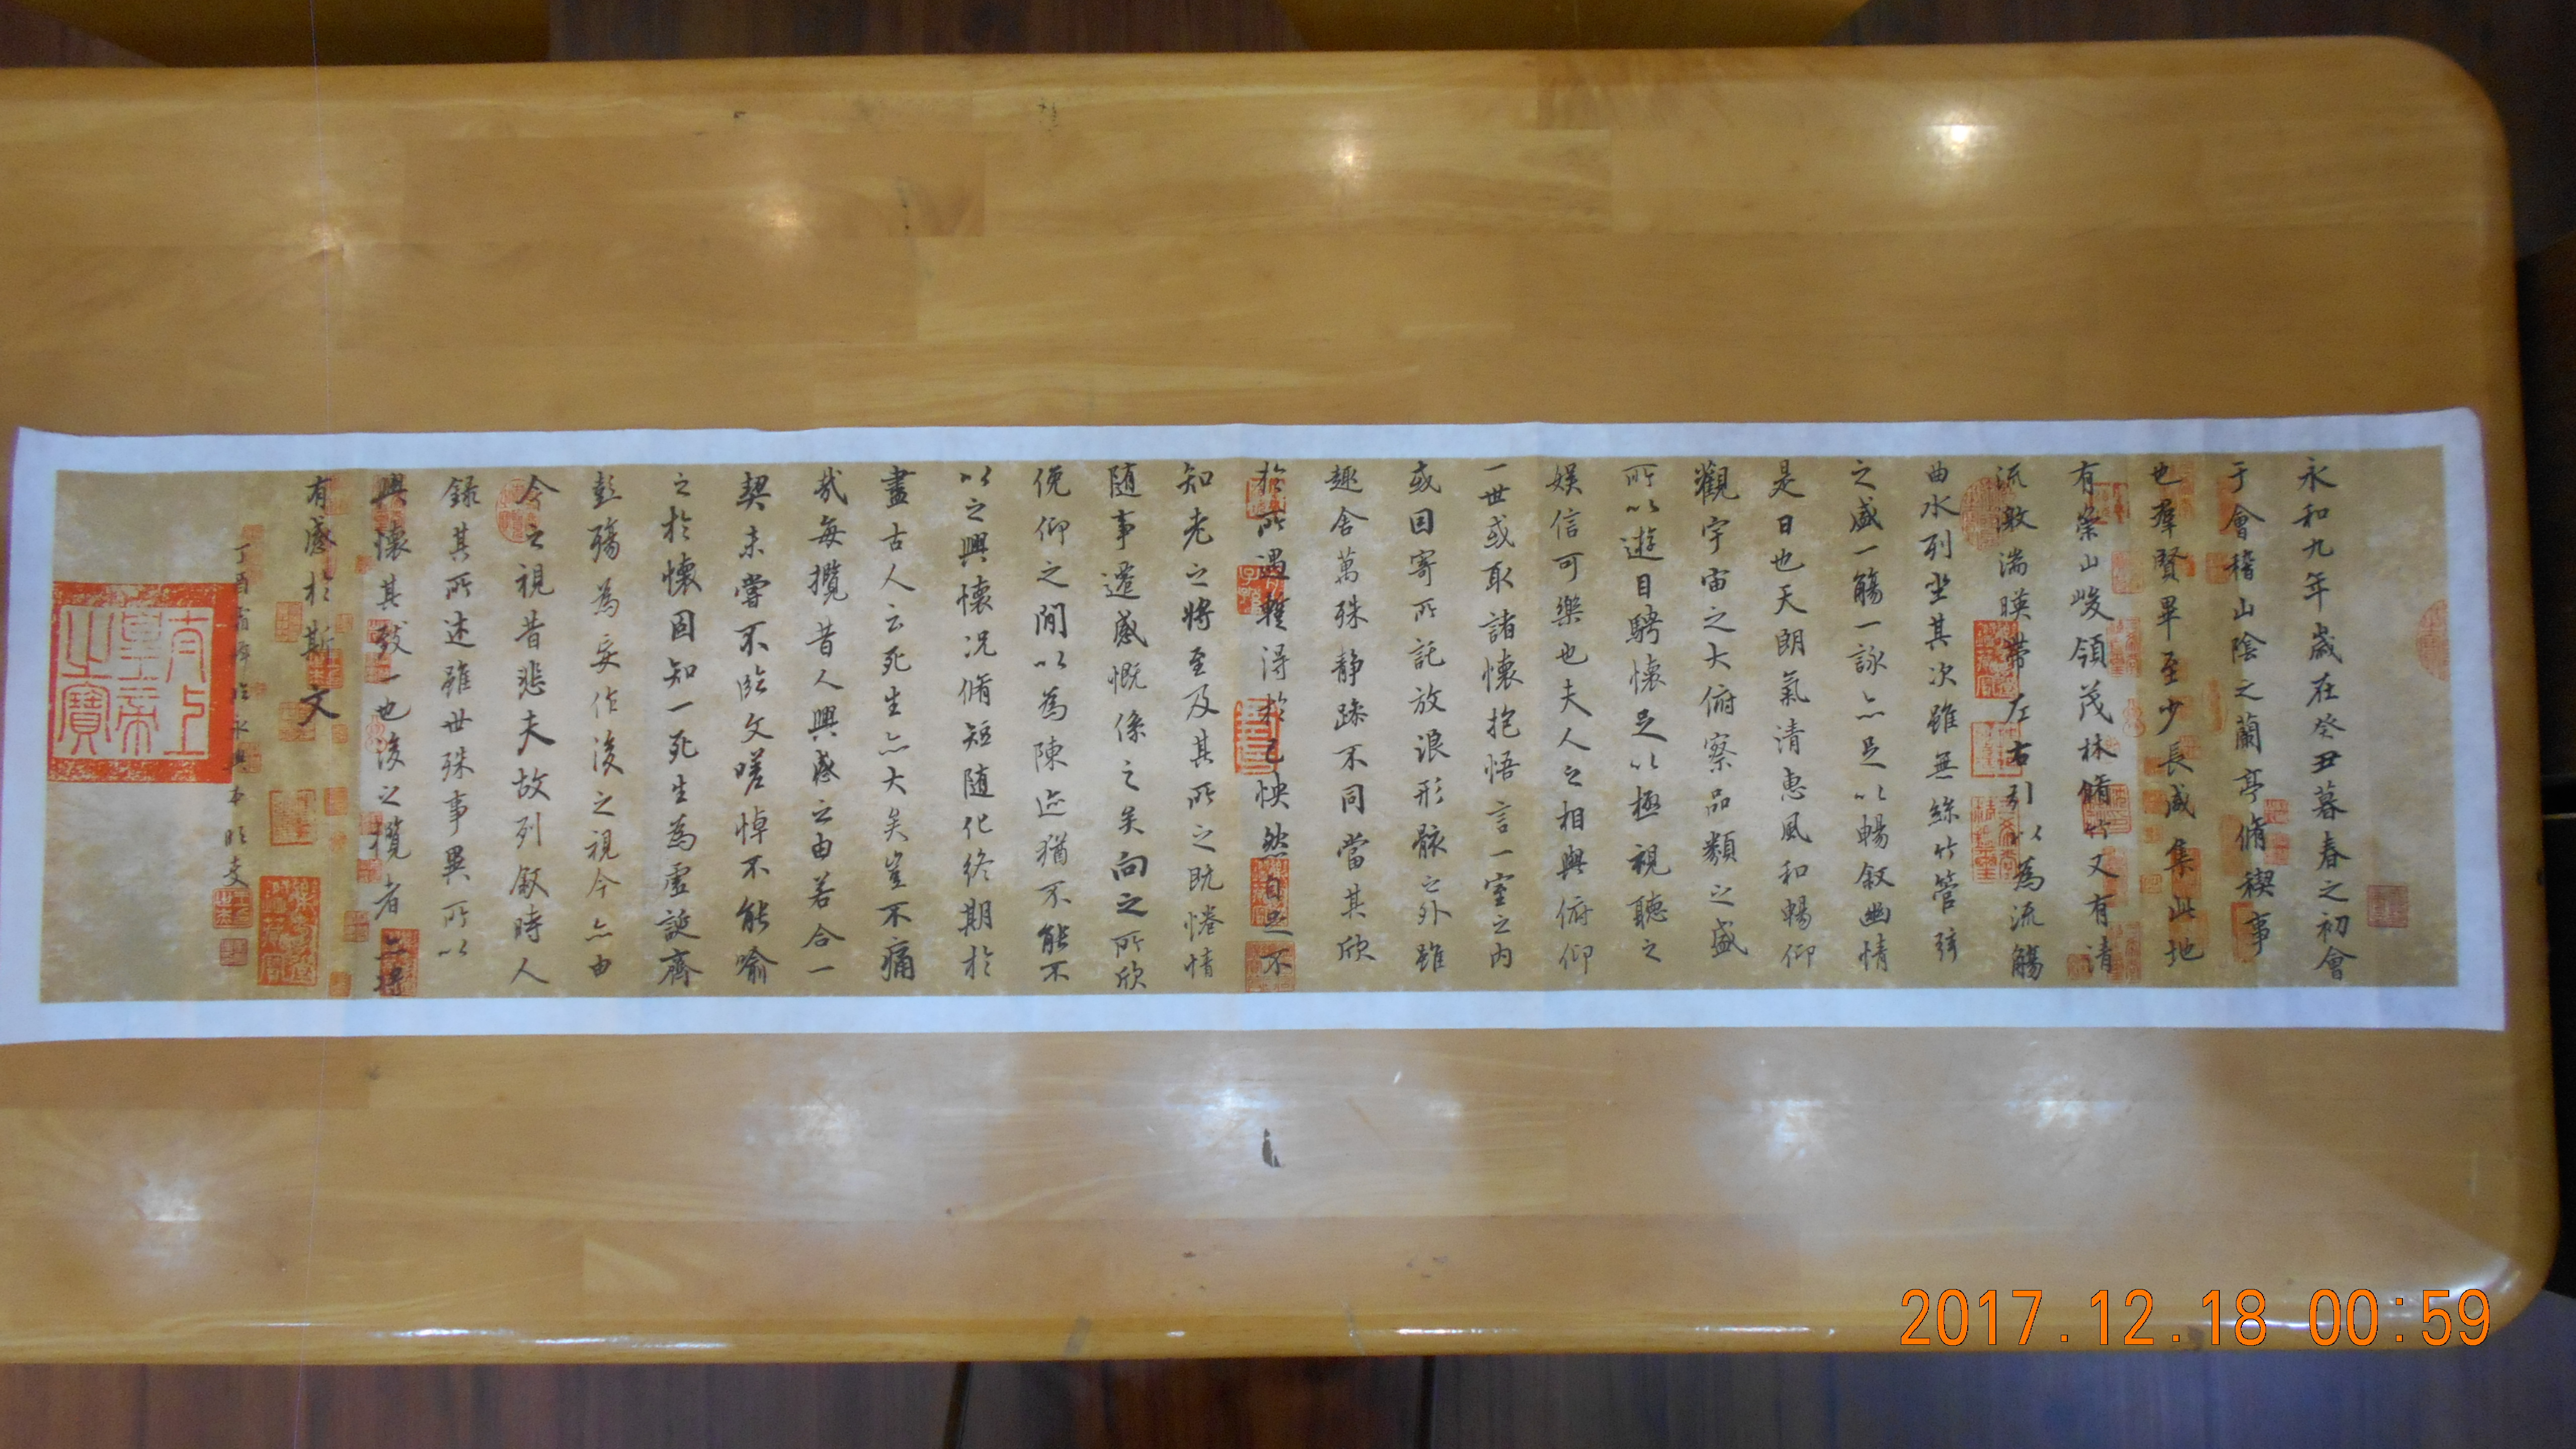 永和九年歲在癸丑暮春之初會
于會稽山陰之蘭亭脩稧事
也羣賢畢至少長咸集此地
有崇山峻領茂林脩竹又有清
流激湍暎帶左右引以為流觴
曲水列坐其次雖無絲竹管弦
之盛一觴一詠亦足以暢敘幽情
是日也天朗氣清惠風和暢仰
觀宇宙之大俯察品類之盛
所以遊目騁懷足以極視聽之
娛信可樂也夫人之相與俯仰
一世或取諸懷抱悟言一室之內
或因寄所託放浪形骸之外雖
趣舍萬殊靜躁不同當其欣
於所遇輊得於己怏然自足不
知老之將至及其所之既惓情
隨事遷感慨係之矣向之所欣
俛仰之閒以為陳迹猶不能不
以之興懷況脩短隨化終期於
盡古人云死生亦大矣豈不痛
哉每攬昔人興感之由若合一
契未嘗不臨文嗟悼不能喻
之於懷固知一死生為虛誕齊
彭殤為妄作後之視今亦由
今之視昔悲夫故列敘時人
錄其所述雖世殊事異所以
興懷其致一也後之攬者亦將
有感於斯文
丁酉 臨永興本
太上皇帝之寶
2017.12.18 00:59